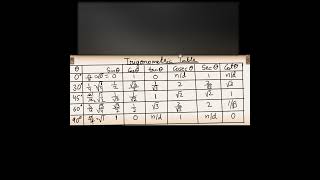 Trigonometric Table
θ Sinθ Cosθ tanθ Cosecθ Secθ Cotθ
0° 0 1 0 n/d 1 n/d
30° 1/2 √3/2 1/√3 2 2/√3
45° 1/√2 1/√2 1 √2 √2 1
60° √3/2 1/2 √3 2/√3 2 1/√3
90° 1 0 n/d 1 n/d 0